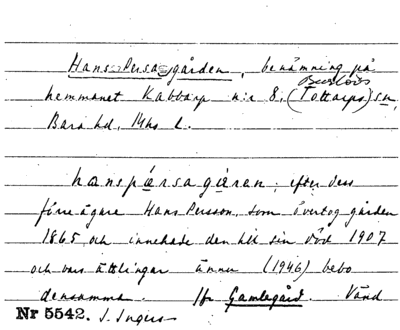 Hans-Persa-gården, benämning på
Burlövs
hemmanet Kabbarp n:r 8, (Tottarps) sn,
Bara hd, Mhs l.
hanspærsagáran; efter dess
förre ägare Hans Persson, som övertog gården
1865 och innehade den till sin död 1907
och vars ättlingar ännu (1946) bebo
densamma. Jfr Gamlegård. Vänd
Nr 5542. J. Ingers